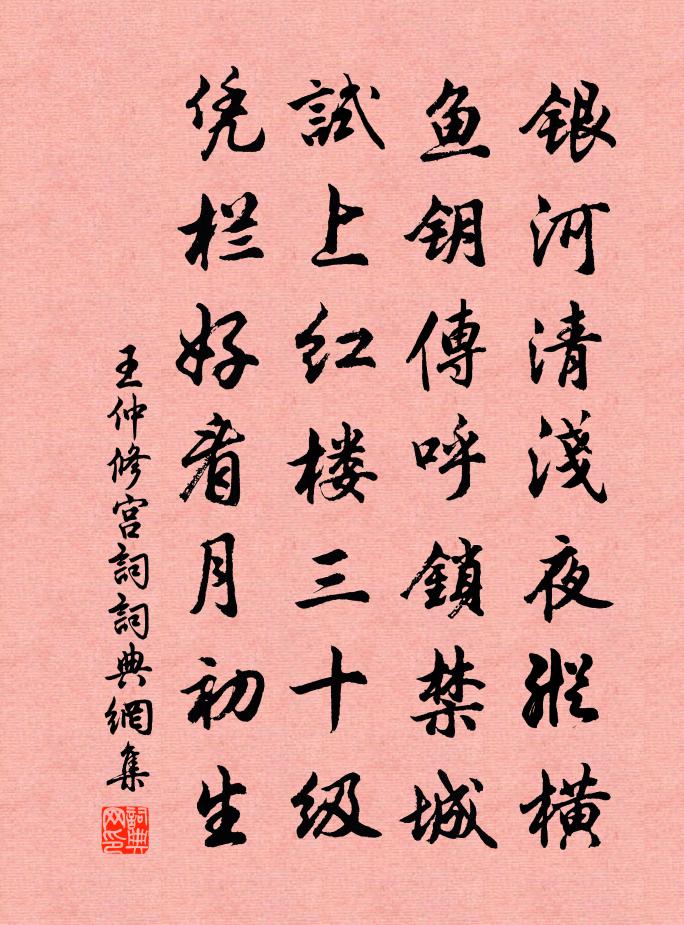 银河清淺夜縱橫
鱼钥傳呼鎖禁城
試上红楼三十级
凭栏好看月初生
王仲修宫詞詞典網集
詞典网印